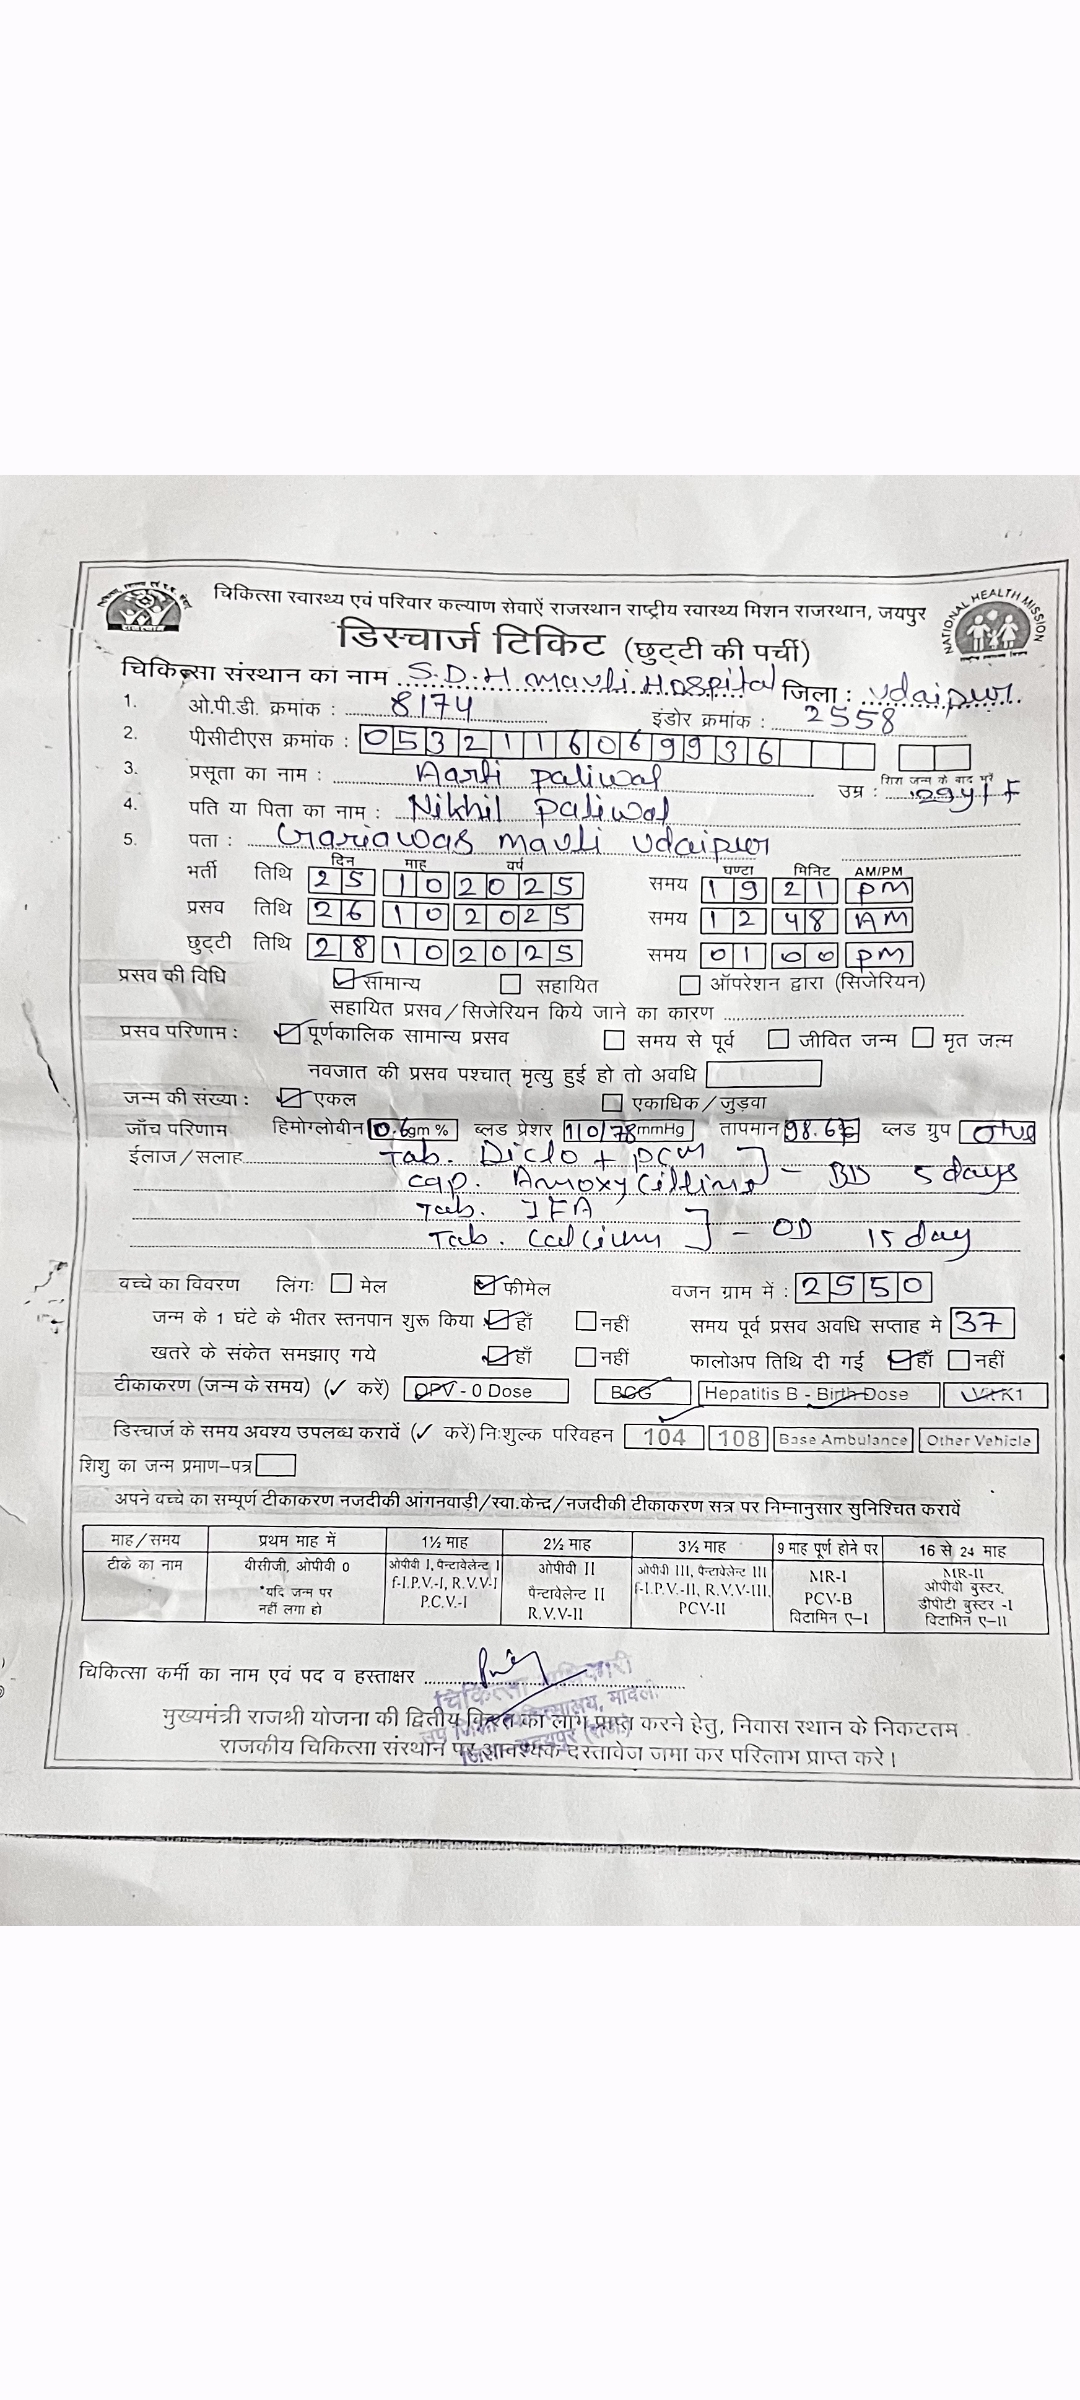 चिकित्सा स्वास्थ्य एवं परिवार कल्याण सेवाऐं राजस्थान राष्ट्रीय स्वास्थ्य मिशन राजस्थान, जयपुर
NATIONAL HEALTH MISSION
डिस्चार्ज टिकिट (छुट्टी की पर्ची)
चिकित्सा संस्थान का नाम S.D.H mavli Hospital जिला : Udaipur
1. ओ.पी.डी. क्रमांक : 8174 इंडोर क्रमांक : 2558
2. पीसीटीएस क्रमांक : 0532116069936
3. प्रसूता का नाम : Aarti paliwal उम्र : 29y/F
4. पति या पिता का नाम : Nikhil paliwal
5. पता : Gariawas mavli Udaipur
दिन माह वर्ष घण्टा मिनिट AM/PM
भर्ती तिथि 25 10 2025 समय 19 21 PM
प्रसव तिथि 26 10 2025 समय 12 48 AM
छुट्टी तिथि 28 10 2025 समय 01 00 PM
प्रसव की विधि सामान्य सहायित ऑपरेशन द्वारा (सिजेरियन)
सहायित प्रसव/सिजेरियन किये जाने का कारण
प्रसव परिणाम : पूर्णकालिक सामान्य प्रसव समय से पूर्व जीवित जन्म मृत जन्म
नवजात की प्रसव पश्चात् मृत्यु हुई हो तो अवधि
जन्म की संख्या : एकल एकाधिक/जुड़वा
जाँच परिणाम हिमोग्लोबीन gm % ब्लड प्रेशर 110/78 mmHg तापमान 98.6 ब्लड ग्रुप O+ve
ईलाज/सलाह Tab. Diclo + PCM
Cap. Amoxycilline - BD 5 days
Tab. IFA
Tab. Calcium - OD 15 day
बच्चे का विवरण लिंगः मेल फीमेल वजन ग्राम में : 2550
जन्म के 1 घंटे के भीतर स्तनपान शुरू किया हाँ नहीं समय पूर्व प्रसव अवधि सप्ताह मे 37
खतरे के संकेत समझाए गये हाँ नहीं फालोअप तिथि दी गई हाँ नहीं
टीकाकरण (जन्म के समय) (✓ करें) OPV - 0 Dose BCG Hepatitis B - Birth Dose Vit K1
डिस्चार्ज के समय अवश्य उपलब्ध करावें (✓ करें) निःशुल्क परिवहन 104 108 Base Ambulance Other Vehicle
शिशु का जन्म प्रमाण-पत्र
अपने बच्चे का सम्पूर्ण टीकाकरण नजदीकी आंगनवाड़ी/स्वा.केन्द्र/नजदीकी टीकाकरण सत्र पर निम्नानुसार सुनिश्चित करावें
माह/समय प्रथम माह में 1½ माह 2½ माह 3½ माह 9 माह पूर्ण होने पर 16 से 24 माह
टीके का नाम बीसीजी, ओपीवी 0 ओपीवी I, पैन्टावेलेन्ट I ओपीवी II ओपीवी III, पैन्टावेलेन्ट III MR-I MR-II
*यदि जन्म पर f-I.P.V.-I, R.V.V-I पैन्टावेलेन्ट II f-I.P.V.-II, R.V.V-III, PCV-B ओपीवी बुस्टर,
नहीं लगा हो P.C.V.-I R.V.V-II PCV-II विटामिन ए-I डीपीटी बुस्टर -I
विटामिन ए-II
चिकित्सा कर्मी का नाम एवं पद व हस्ताक्षर
मुख्यमंत्री राजश्री योजना की द्वितीय किस्त का लाभ प्राप्त करने हेतु, निवास स्थान के निकटतम
राजकीय चिकित्सा संस्थान पर आवश्यक दस्तावेज जमा कर परिलाभ प्राप्त करे।